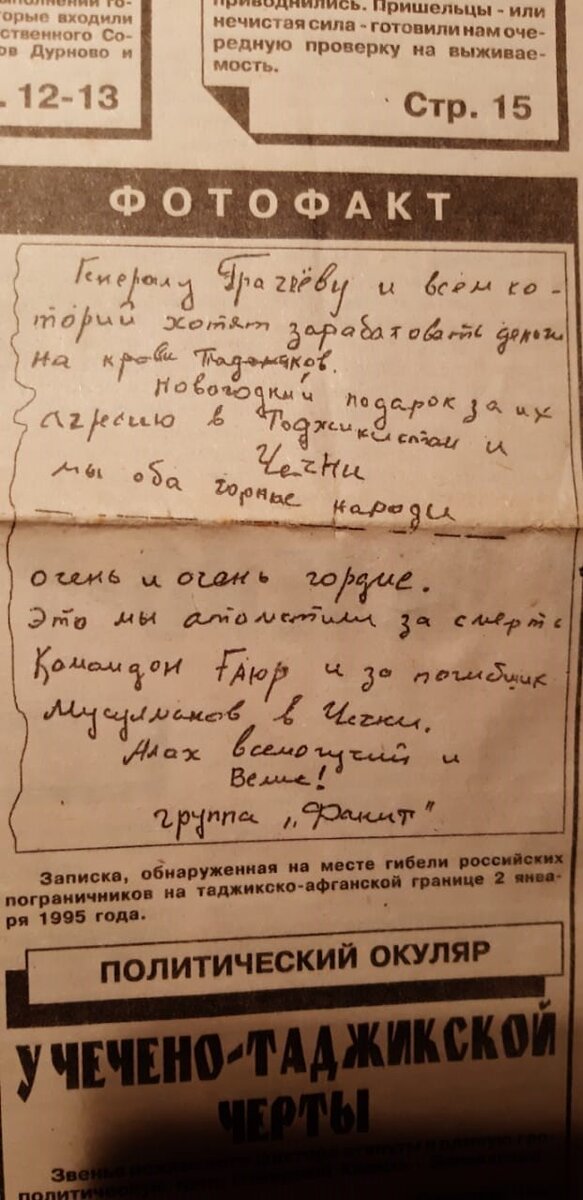 полнении го-
орые входили
ственного Со-
ов Дурново и
. 12-13
приводнились. Пришельцы - или
нечистая сила - готовили нам оче-
редную проверку на выживае-
мость.
Стр. 15
ФОТОФАКТ
Генералу Грачёву и всем ко-
торий хотят зарабатовать деньги
на крови Таджиков.
Новогодний подарок за их
агресию в Тоджикистан и
Чечни
мы оба горные народи
очень и очень гордие.
Это мы атомстили за смерть
Командон Ғаюр и за погибщик
Мусулманов в Чечни.
Алах всемогучий и
Велик!
группа „Фанит"
Записка, обнаруженная на месте гибели российских
пограничников на таджикско-афганской границе 2 янва-
ря 1995 года.
ПОЛИТИЧЕСКИЙ ОКУЛЯР
У ЧЕЧЕНО-ТАДЖИКСКОЙ
ЧЕРТЫ